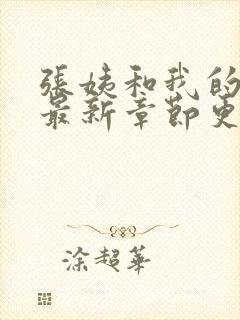 張姨和我的
最新章節更
涂超華